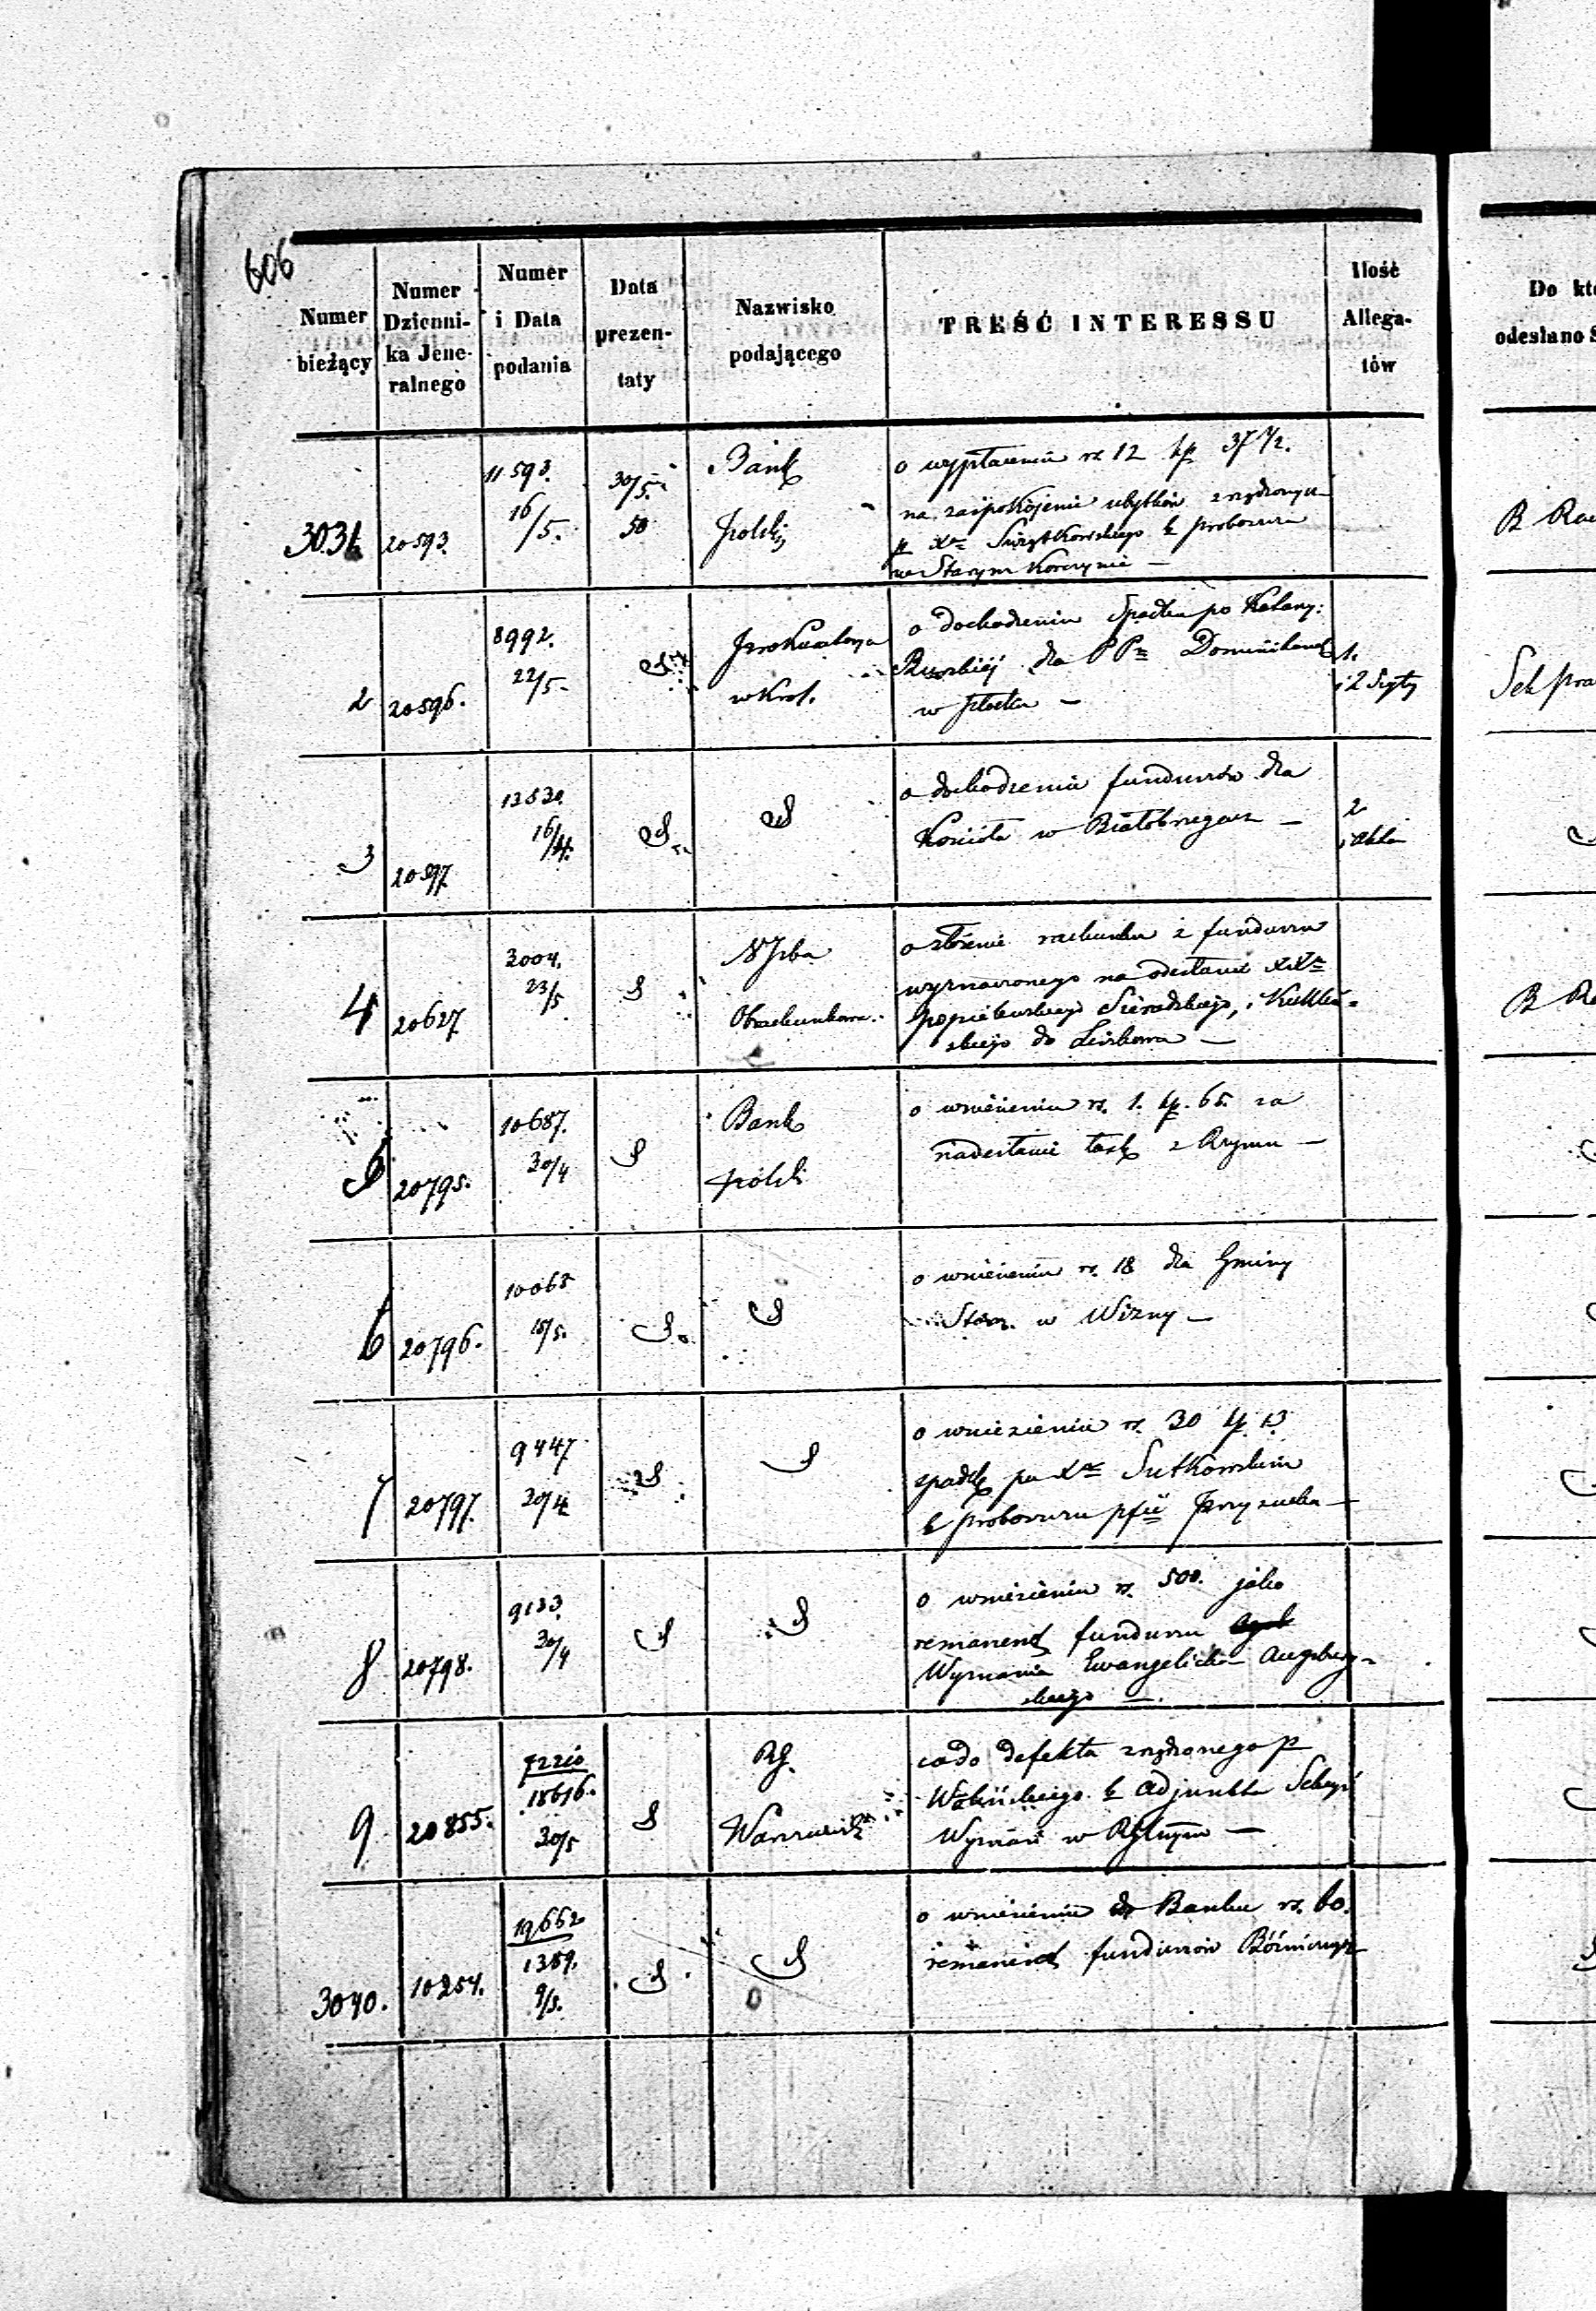 606
Numer bieżący
Numer Dzienni- ka Jene- ralnego
Numer i Data podania
Data prezen- taty
Nazwisko podającego
TREŚĆ INTERESSU
Ilość Allega- tów
Do kt
odesłano S
3031 20593. 11593. 16/5. 30/5 50 Bank Polski
o wypłacenie rs. 12 kp 37 1/2.
na zaspokojenie ubytków zrządzonych
p. Xa Świątkowskiego b. proboszcza
w Starym Korczynie —
2 20596. 8992. 22/5. Prokuratorya w Król.
o dochodzeniu Spadku po Katarzy:
dla PP Dominikanek
w Płocku —
1.
i 2 Szyty
3 20597 12530. 16/4.
o dochodzeniu funduszów dla
Kościoła w Białobrzegach —
2
i akta
4 20627 3004. 23/5 N Izba Obrachunkowa
o złożenie rachunku z funduszu
wyznaczonego na odesłanie XX
Sieradzkiego, i
skiego do
5 20795. 10687. 30/4 Bank Polski
o wniesieniu rs. 1. kp. 65. za
nadesłanie z Rzymu —
6 20796. 10065 15/5.
o wniesieniu rs. 18 dla Gminy
Staroz. w Wizny —
7 20797. 9447 30/4
o wniesieniu rs. 30 kp 13
spadk po Xa Sutkowskim
b proboszczu pfii Przysucha —
8 20798. 9133. 30/4
o wniesieniu rs. 500. jako
remanent funduszu
Wyznania Ewangelicko Augsburg-
skiego —
9 20855. 72210 18616. 30/5 RG. Warszawski
co do defektu zrządzonego p
Wolińskiego b adjunkta Sekcyi
Wyznań w RG —
3040. 10254. 19662 1389. 9/5.
o wniesieniu do Banku rs. 60.
remanent funduszów Bóżniczych
B Ra
Sek pra
B Ra